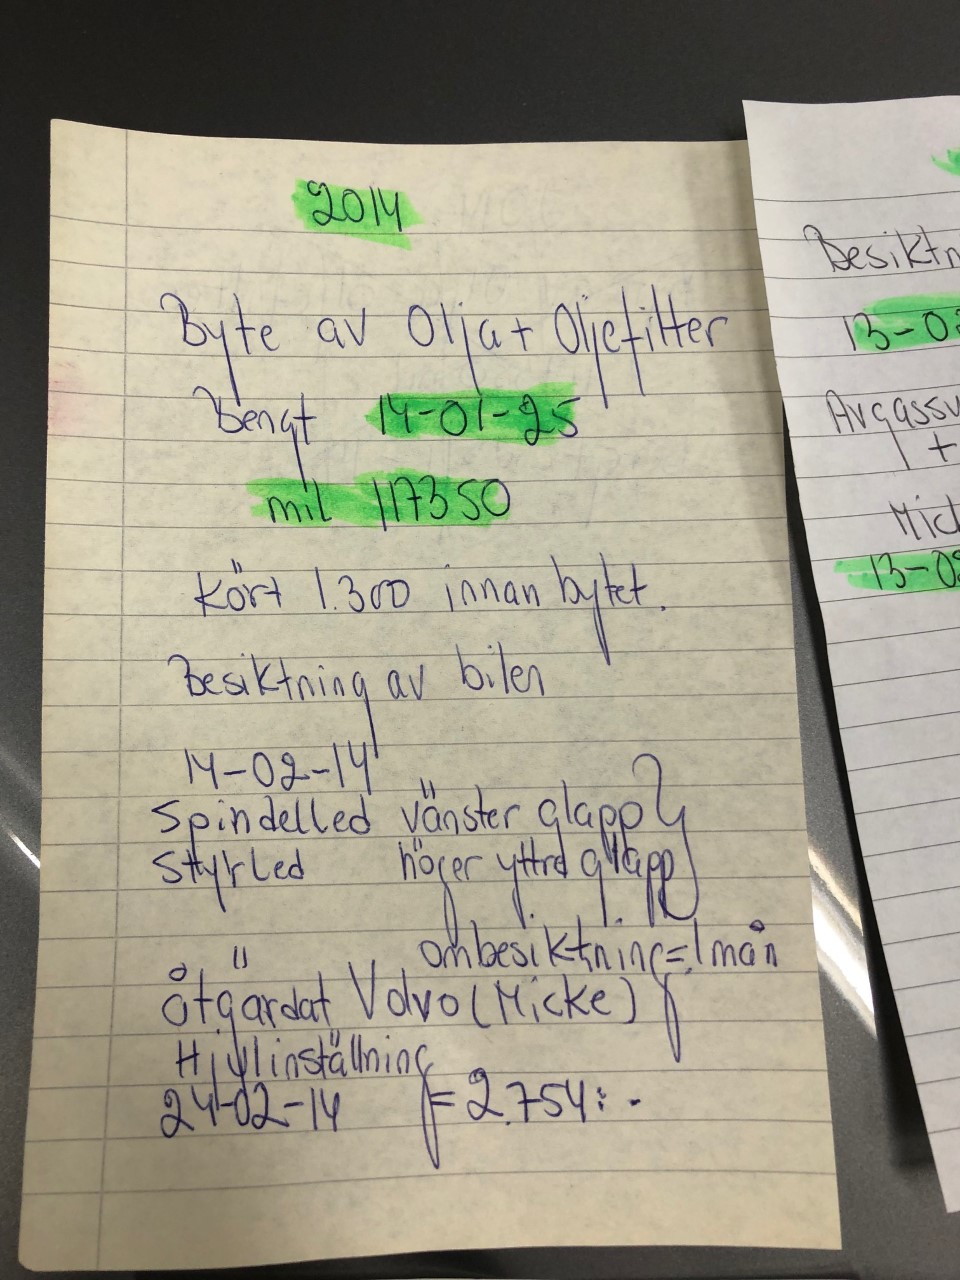 2014
Byte av Olja + Oljefilter
Bengt 14-01-25
mil 117350
Kört 1.300 innan bytet.
Besiktning av bilen
14-02-14
Spindelled vänster glapp
Styrled höger yttre glapp
ombesiktning = 1 mån
Åtgärdat Volvo (Micke)
Hjulinställning
24-02-14 = 2.754:-
Besiktn
13-02
Avgassv
+
Mick
13-02